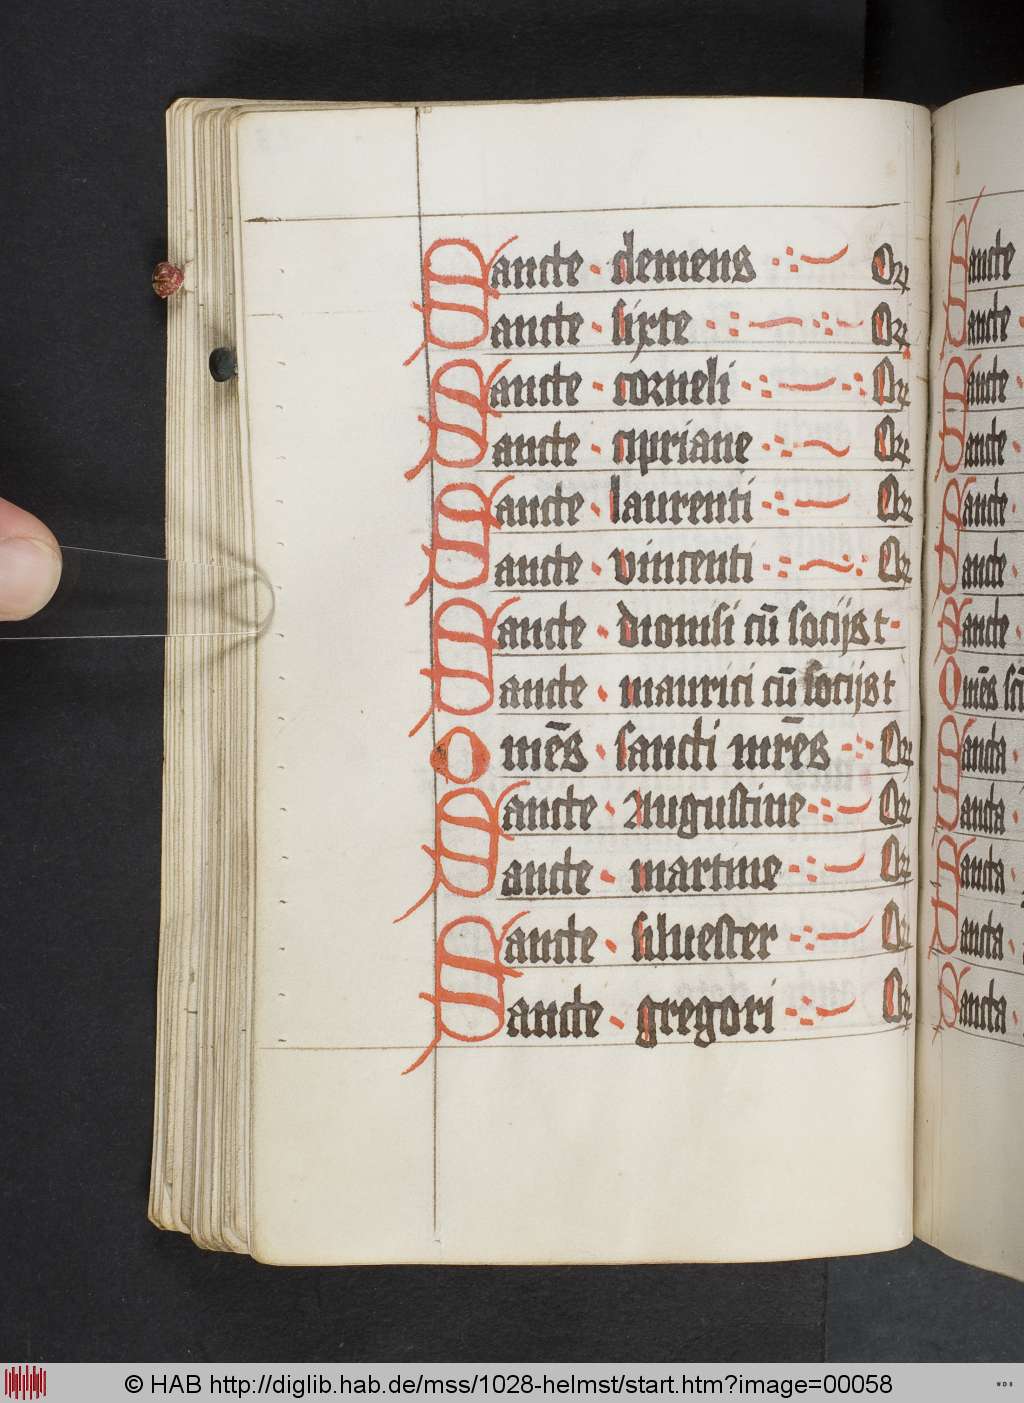 Sancte · clemens Or
Sancte · sixte Or
Sancte · corneli Or
Sancte · cipriane Or
Sancte · laurenti Or
Sancte · vincenti Or
Sancte · dionisi cū socijs t
Sancte · maurici cū socijs t
Omēs · sancti mr̄es Or
Sancte · Augustine Or
Sancte · martine Or
Sancte · siluester Or
Sancte · gregori Or
Sancte
Sancte ·
Sancte ·
Sancte ·
Sancte ·
Sancte ·
Sancte ·
Omēs
Sancta ·
Sancta ·
Sancta ·
Sancta ·
Sancta ·
© HAB http://diglib.hab.de/mss/1028-helmst/start.htm?image=00058